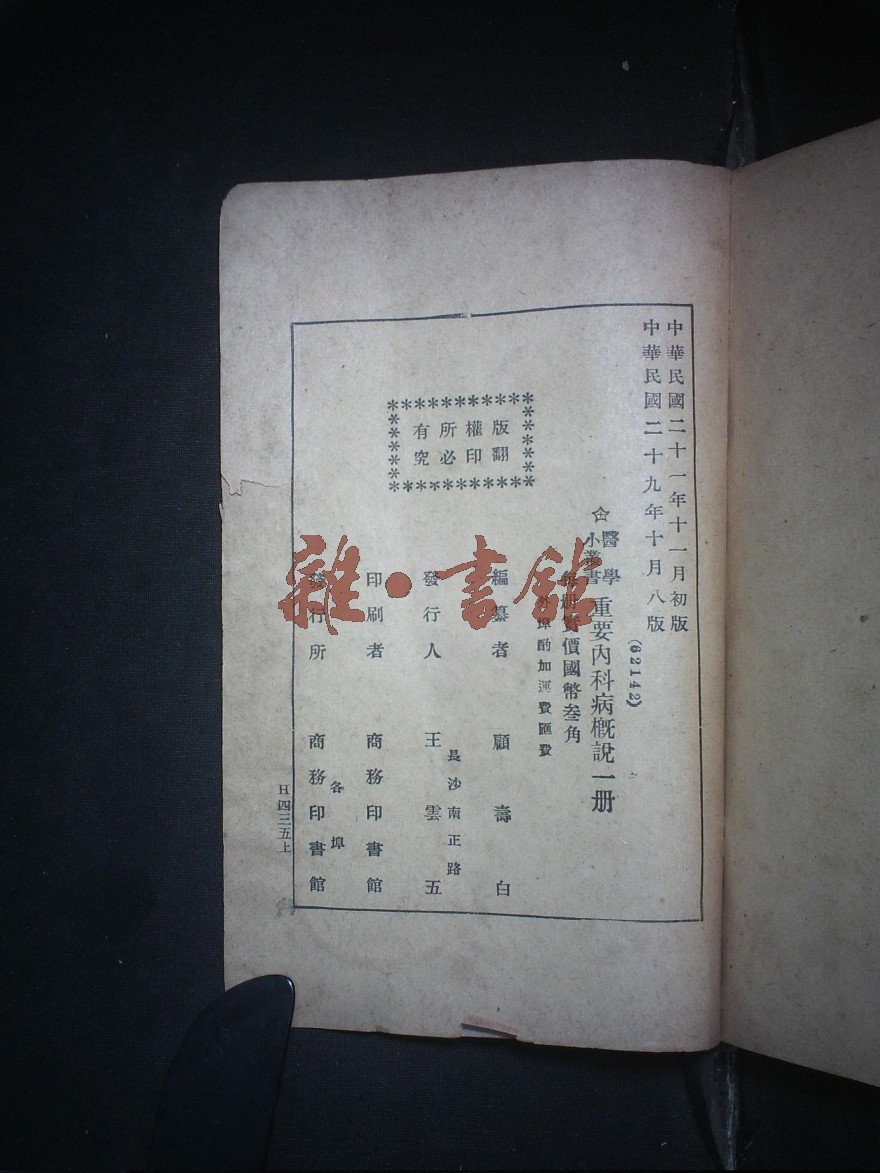 中華民國二十一年十一月初版
中華民國二十九年十月八版
(62142)
醫學
小叢書
重要內科病概說一册
每册實價國幣叁角
外埠酌加運費匯費
版權所有
翻印必究
編纂者 顧壽白
長沙南正路
發行人 王雲五
印刷者 商務印書館
各埠
發行所 商務印書館
H四三五上
雜·書館